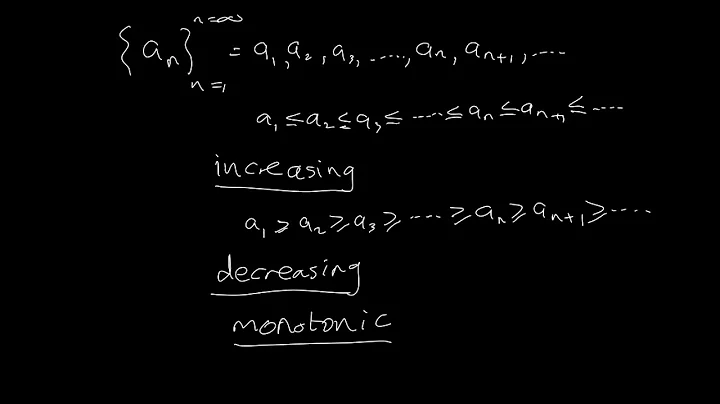 {aₙ}ₙ₌₁ⁿ⁼∞ = a₁, a₂, a₃, ....., aₙ, aₙ₊₁, ....
a₁ ≤ a₂ ≤ a₃ ≤ ..... ≤ aₙ ≤ aₙ₊₁ ≤ ....
increasing
a₁ ≥ a₂ ≥ a₃ ≥ .... ≥ aₙ ≥ aₙ₊₁ ≥ ....
decreasing
monotonic